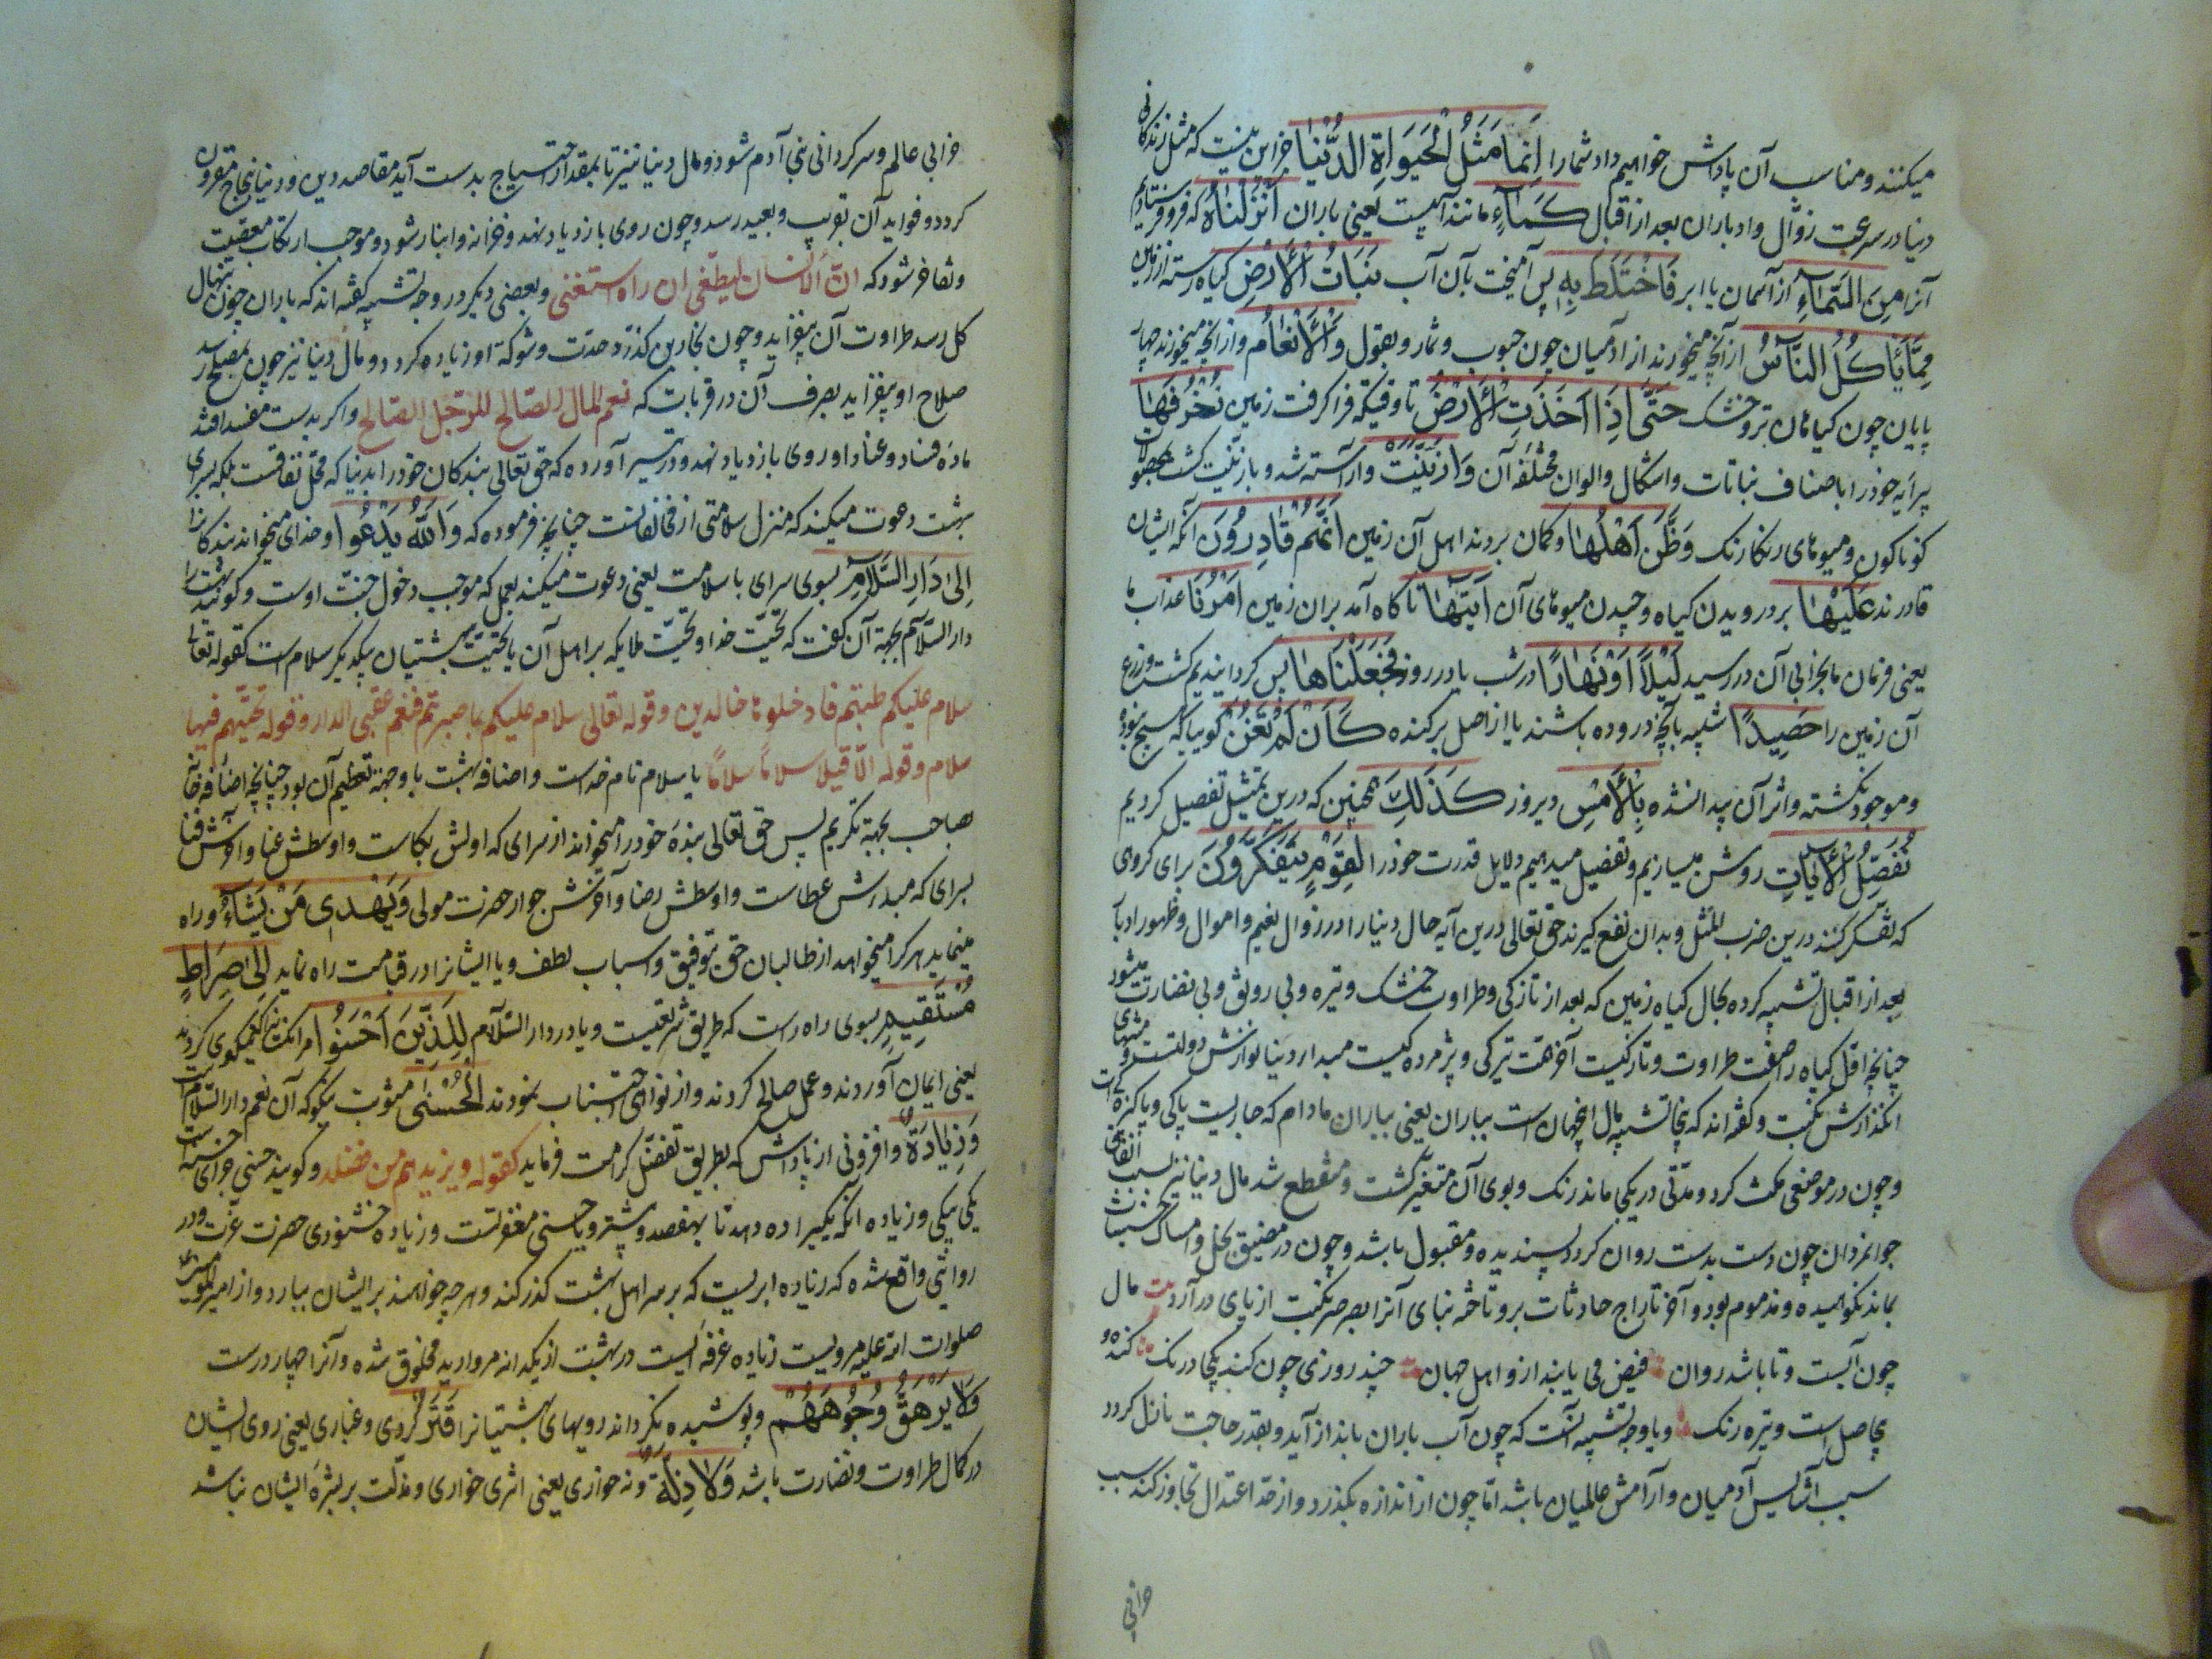 میکنند و مناسب آن پاداش خواهیم داد شما را اِنَّمَا مَثَلُ الْحَیَوٰاةِ الدُّنْیَا جز این نیست که مثل زندکانی
دنیا در سرعت زوال و ادباران بعد از اقبال کَمَآءٍ مانند آبیست یعنی باران اَنْزَلْنَاهُ که فرو فرستادیم
آنرا مِنَ السَّمَآءِ از آسمان یا ابر فَاخْتَلَطَ بِهٖ پس آمیخت بآن آب نَبَاتُ الْاَرْضِ کیاه رسته از زمین
مِمَّا یَاْکُلُ النَّاسُ از آنچه میخورند از آدمیان چون حبوب و ثمار و بقول وَالْاَنْعَامُ و از آنچه میخورند چهار
پایان چون کیاهان تر و خشک حَتّٰی اِذَا اَخَذَتِ الْاَرْضُ تا وقتیکه فرا کرفت زمین زُخْرُفَهَا
پیرایه خود را باصناف نباتات و اشکال و الوان مختلفه آن وَازَّیَّنَتْ و آراسته شد و بازینت کشت بحبوبات
کوناکون و میوهای رنکارنک وَظَنَّ اَهْلُهَا و کمان بردند اهل آن زمین اَنَّهُمْ قَادِرُونَ آنکه ایشان
قادرند عَلَیْهَا بر درویدن کیاه و چیدن میوهای آن اَتٰیهَا ناکاه آمد بران زمین اَمْرُنَا عذاب ما
یعنی فرمان ما بخرابی آن در رسید لَیْلًا اَوْ نَهَارًا در شب یا در روز فَجَعَلْنَاهَا پس کردانیدیم کشت و زرع
آن زمین را حَصِیدًا شبیه بآنچه دروده باشند یا از اصل برکنده کَاَنْ لَمْ تَغْنَ کوییا که هیچ نبوده
و موجود نکشته و اثر آن پیدا نشده بِالْاَمْسِ دیروز کَذٰلِکَ همچنین که درین تمثیل تفصیل کردیم
نُفَصِّلُ الْاٰیَاتِ روشن میسازیم و تفصیل میدهیم دلایل قدرت خود را لِقَوْمٍ یَتَفَکَّرُونَ برای کروهی
که تفکر کنند درین ضرب المثل و بدان نفع کیرند حق تعالی درین آیه حال دنیا را در زوال نعیم و اموال و ظهور ادبار
بعد از اقبال تشبیه کرده بحال کیاه زمین که بعد از تازکی و طراوت خشک و تیره و بی رونق و بی نضارت میشود
چنانچه اول کیاه را صفت طراوت و تازکیست آخر همت تیرکی و پژمرده کیست مبدا دنیا نوازش دولتست و منتهای
آن کذارش نکبت و کفته اند که تشبیه مال این جهان است بباران یعنی بباران مادام که جاریست پاکی و پاکیزه است
و چون در موضعی مکث کرد و مدتی در یکجا ماند رنک و بوی آن متغیر کشت و منقطع شد مال دنیا نیز بسبب انفاق
جوانمردان چون دست بدست روان کردد پسندیده و مقبول باشد و چون در مضیق بخل و امساک خسیسان
بماند نکوهیده و مذموم بود و آخر تاراج حادثات برو تاخته بنای آنرا بصرصر نکبت از پای درآرد بیت مال
چون آبست و تا باشد روان فیض می یابند ازو اهل جهان چند روزی چون کند یکجا درنک کنده و
بی حاصل است و تیره رنک و یا وجه تشبیه آنست که چون آب باران باندازه آید و بقدر حاجت نازل کردد
سبب آسایش آدمیان و آرامش عالمیان باشد اما چون از اندازه بکذرد و از حد اعتدال تجاوز کند سبب
خرابی
خرابی عالم و سرکردانی بنی آدم شود و مال دنیا نیز تا بمقدار احتیاج بدست آید مقاصد دین و دنیا بنجاح مقرون
کردد و فواید آن بقریب و بعید رسد و چون روی بازدیاد نهد و خزانه و انبار شود و موجب ارتکاب معصیت
و تفاخر شود که انّ الانسان لیطغی ان راه استغنی و بعضی دیکر در وجه تشبیه کفته اند که باران چون بنهال
کل رسد طراوت آن بیفزاید و چون بخاربن کذرد حدت و شوکة او زیاده کردد و مال دنیا نیز چون بمصلح رسد
صلاح او بیفزاید بصرف آن در قربات که نعم المال الصالح للرجل الصالح و اکر بدست مفسد افتد
ماده فساد و عناد او روی بازدیاد نهد و در تیسیر آورده که حق تعالی بندکان خود را بدنیا که محل آفاتست بلکه بسرای
بهشت دعوت میکند که منزل سلامتی از مخافاتست چنانچه فرموده که وَاللّٰهُ یَدْعُوا و خدای میخواند بندکانرا
اِلٰی دَارِ السَّلَامِ بسوی سرای با سلامت یعنی دعوت میکند بعمل که موجب دخول جنت اوست و کویند بهشت را
دار السلام بجهة آن کفت که تحیت خدا و تحیت ملایکه بر اهل آن یا تحیت بهشتیان بیکدیکر سلام است کقوله تعالی
سلام علیکم طبتم فادخلوها خالدین و قوله تعالی سلام علیکم بما صبرتم فنعم عقبی الدار و قوله تحیتهم فیها
سلام و قوله الّا قیلا سلاماً سلاماً یا سلام نام خداست و اضافه بهشت باو جهة تعظیم آن بود چنانچه اضافه خانه
بصاحب بجهة تکریم پس حق تعالی بنده خود را میخواند از سرای که اولش بکاست و اوسطش عنا و آخرش فنا
بسرای که مبدءش عطاست و اوسطش رضا و آخرش جوار حضرت مولی وَیَهْدِی مَنْ یَشَآءُ و راه
مینماید هر کرا میخواهد از طالبان حق بتوفیق و اسباب لطف و یا ایشانرا در قیامت راه نماید اِلٰی صِرَاطٍ
مُسْتَقِیمٍ بسوی راه راست که طریق شریعتست و یا در دار السلام لِلَّذِینَ اَحْسَنُوا مر آنکسانرا که نیکویی کردند
یعنی ایمان آوردند و عمل صالح کردند و از نواهی اجتناب نمودند الْحُسْنٰی مثوبت نیکو که آن نعیم دار السلام است
وَزِیَادَةٌ و افزونی از پاداش که بطریق تفضّل کرامت فرماید کقوله و یزیدهم من فضله و کویند حسنی جزای حسنه است
یکی بیکی و زیاده آنکه یکیرا ده دهد تا بهفتصد و بیشتر و یا حسنی مغفرتست و زیاده خشنودی حضرت عزت و در
روایتی واقع شده که زیاده ابریست که بر سر اهل بهشت کذر کند و هر چه خواهند بر ایشان ببارد و از امیر المؤمنین
صلوات الله علیه مرویست زیاده غرفه ایست در بهشت از یکدانه مروارید مخلوق شده و آنرا چهار درست
وَلَا یَرْهَقُ وُجُوهَهُمْ و پوشیده نکرداند رویهای بهشتیانرا قَتَرٌ کردی و غباری یعنی روی ایشان
در کمال طراوت و نضارت باشد وَلَا ذِلَّةٌ و نه خواری یعنی اثری خواری و مذلت بر بشره ایشان نباشد